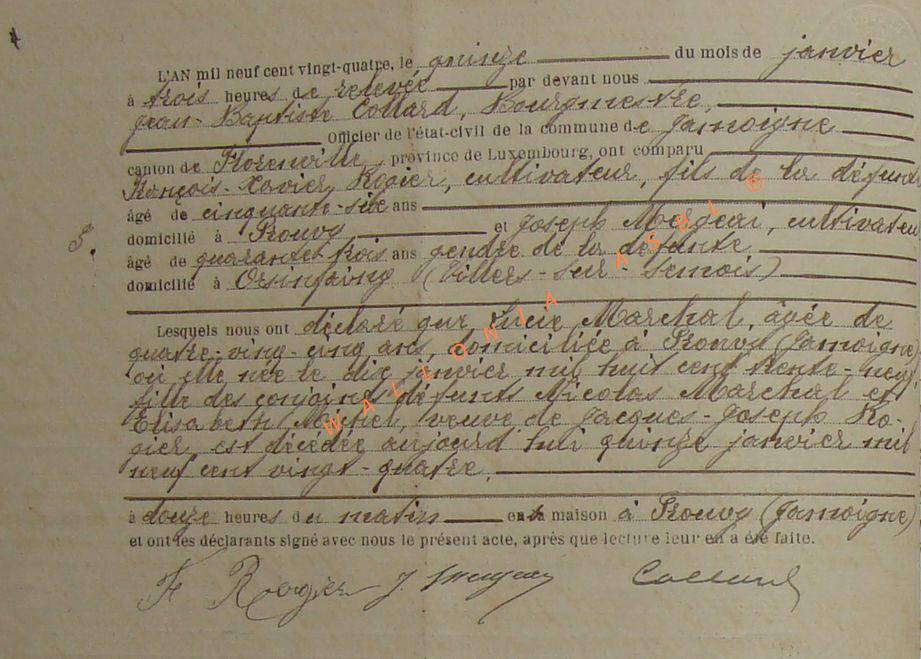 L'AN mil neuf cent vingt-quatre, le quinze du mois de janvier
à trois heures de relevée par devant nous
Jean-Baptiste Collard, Bourgmestre,
Officier de l'état-civil de la commune de Jamoigne
canton de Florenville, province de Luxembourg, ont comparu
François-Xavier Rogier, cultivateur, fils de la défunte
âgé de cinquante-six ans
domicilié à Prouvy et Joseph Mergeai, cultivateur
3.
âgé de quarante trois ans gendre de la défunte
domicilié à Orsinfaing (Villers-sur-Semois)
Lesquels nous ont déclaré que Lucie Marchal, âgée de
quatre-vingt-cinq ans, domiciliée à Prouvy (Jamoigne)
où elle née le dix janvier mil huit cent trente-neuf
fille des conjoints défunts Nicolas Marchal et
Elisabeth Michel, veuve de Jacques-Joseph Ro-
gier, est décédée aujourd'hui quinze janvier mil
neuf cent vingt-quatre,
à douze heures du matin en sa maison à Prouvy (Jamoigne)
et ont les déclarants signé avec nous le présent acte, après que lecture leur en a été faite.
F. Rogier J. Mergeay Collard
WALLONIA ASBL ®